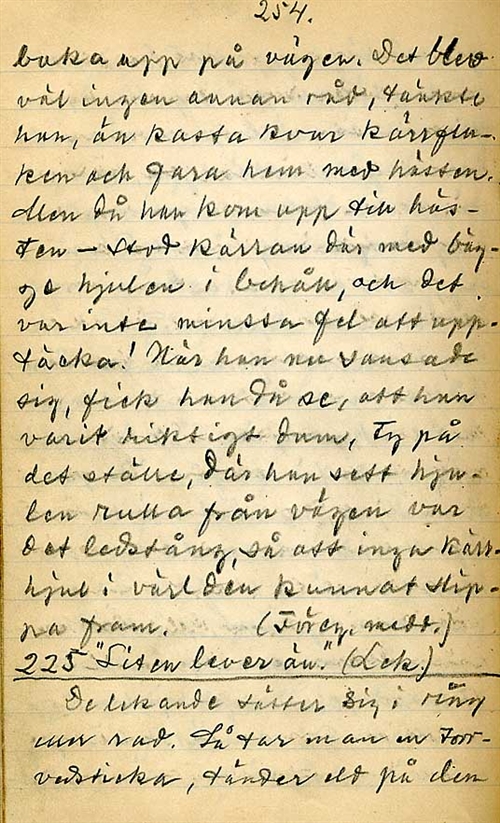 254.
baka upp på vägen. Det blev
väl ingen annan råd, tänkte
han, än kasta kvar kärrfla-
ken och fara hem med hästen.
Men då han kom upp till häs-
ten – stod kärran där med bäg-
ge hjulen i behåll, och det
var inte minsta fel att upp-
täcka! När han nu sansade
sig, fick han då se, att han
varit riktigt dum, ty på
det ställe, där han sett hju-
len rulla från vägen var
det ledstång, så att inga kärr-
hjul i världen kunnat slip-
pa fram. (Föreg. medd.)
225 "Liten lever än." (Lek.)
De lekande sätter sig i ring
eller rad. Så tar man en torr-
vedsticka, tänder eld på den